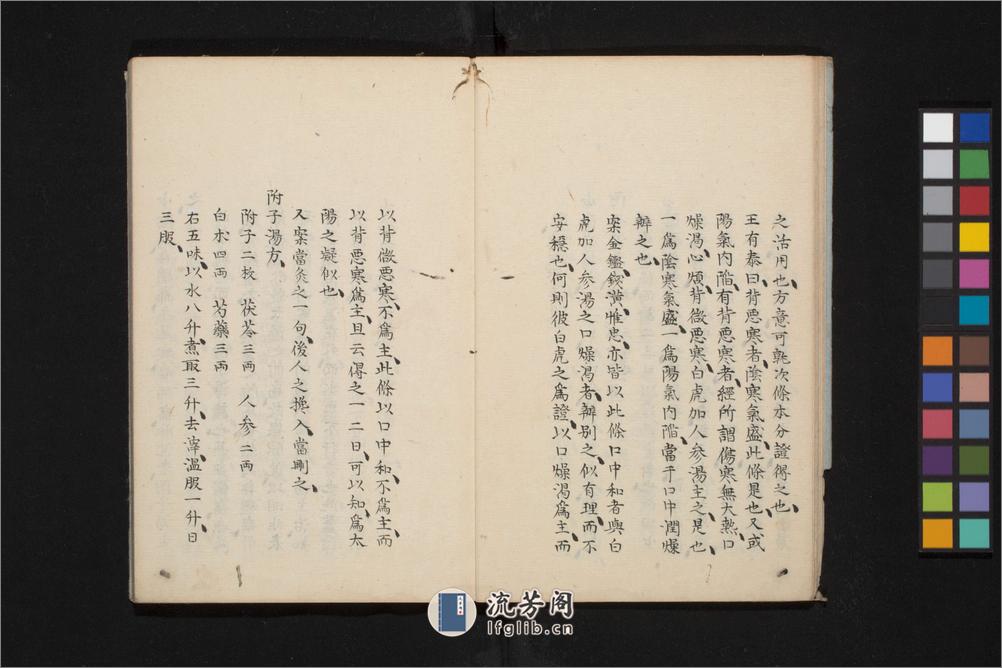 之活用也、方意可就次條本分證得之也、
王有泰曰、背悪寒者、陰寒氣盛、此條是也、又或
陽氣内陷、有背悪寒者、經所謂傷寒無大熱、口
燥渴、心煩、背微悪寒、白虎加人参湯主之是也、
一爲陰寒氣盛、一爲陽氣内陷、當于口中潤燥
辨之也、
案金鑑錢潢惟忠、亦皆以此條口中和者、與白
虎加人参湯之口燥渴者、辨別之、似有理、而不
安穩也、何則彼白虎之爲證、以口燥渴爲主、而
以背微悪寒、不爲主、此條以口中和、不爲主、而
以背悪寒爲主、且云得之一二日、可以知爲太
陽之疑似也、
又案當灸之一句、後人之攙入、當刪之、
附子湯方、
附子二枚 茯苓三兩 人参二兩
白朮四兩 芍藥三兩
右五味、以水八升、煮取三升、去滓、温服一升、日
三服、
流芳阁
lfglib.cn